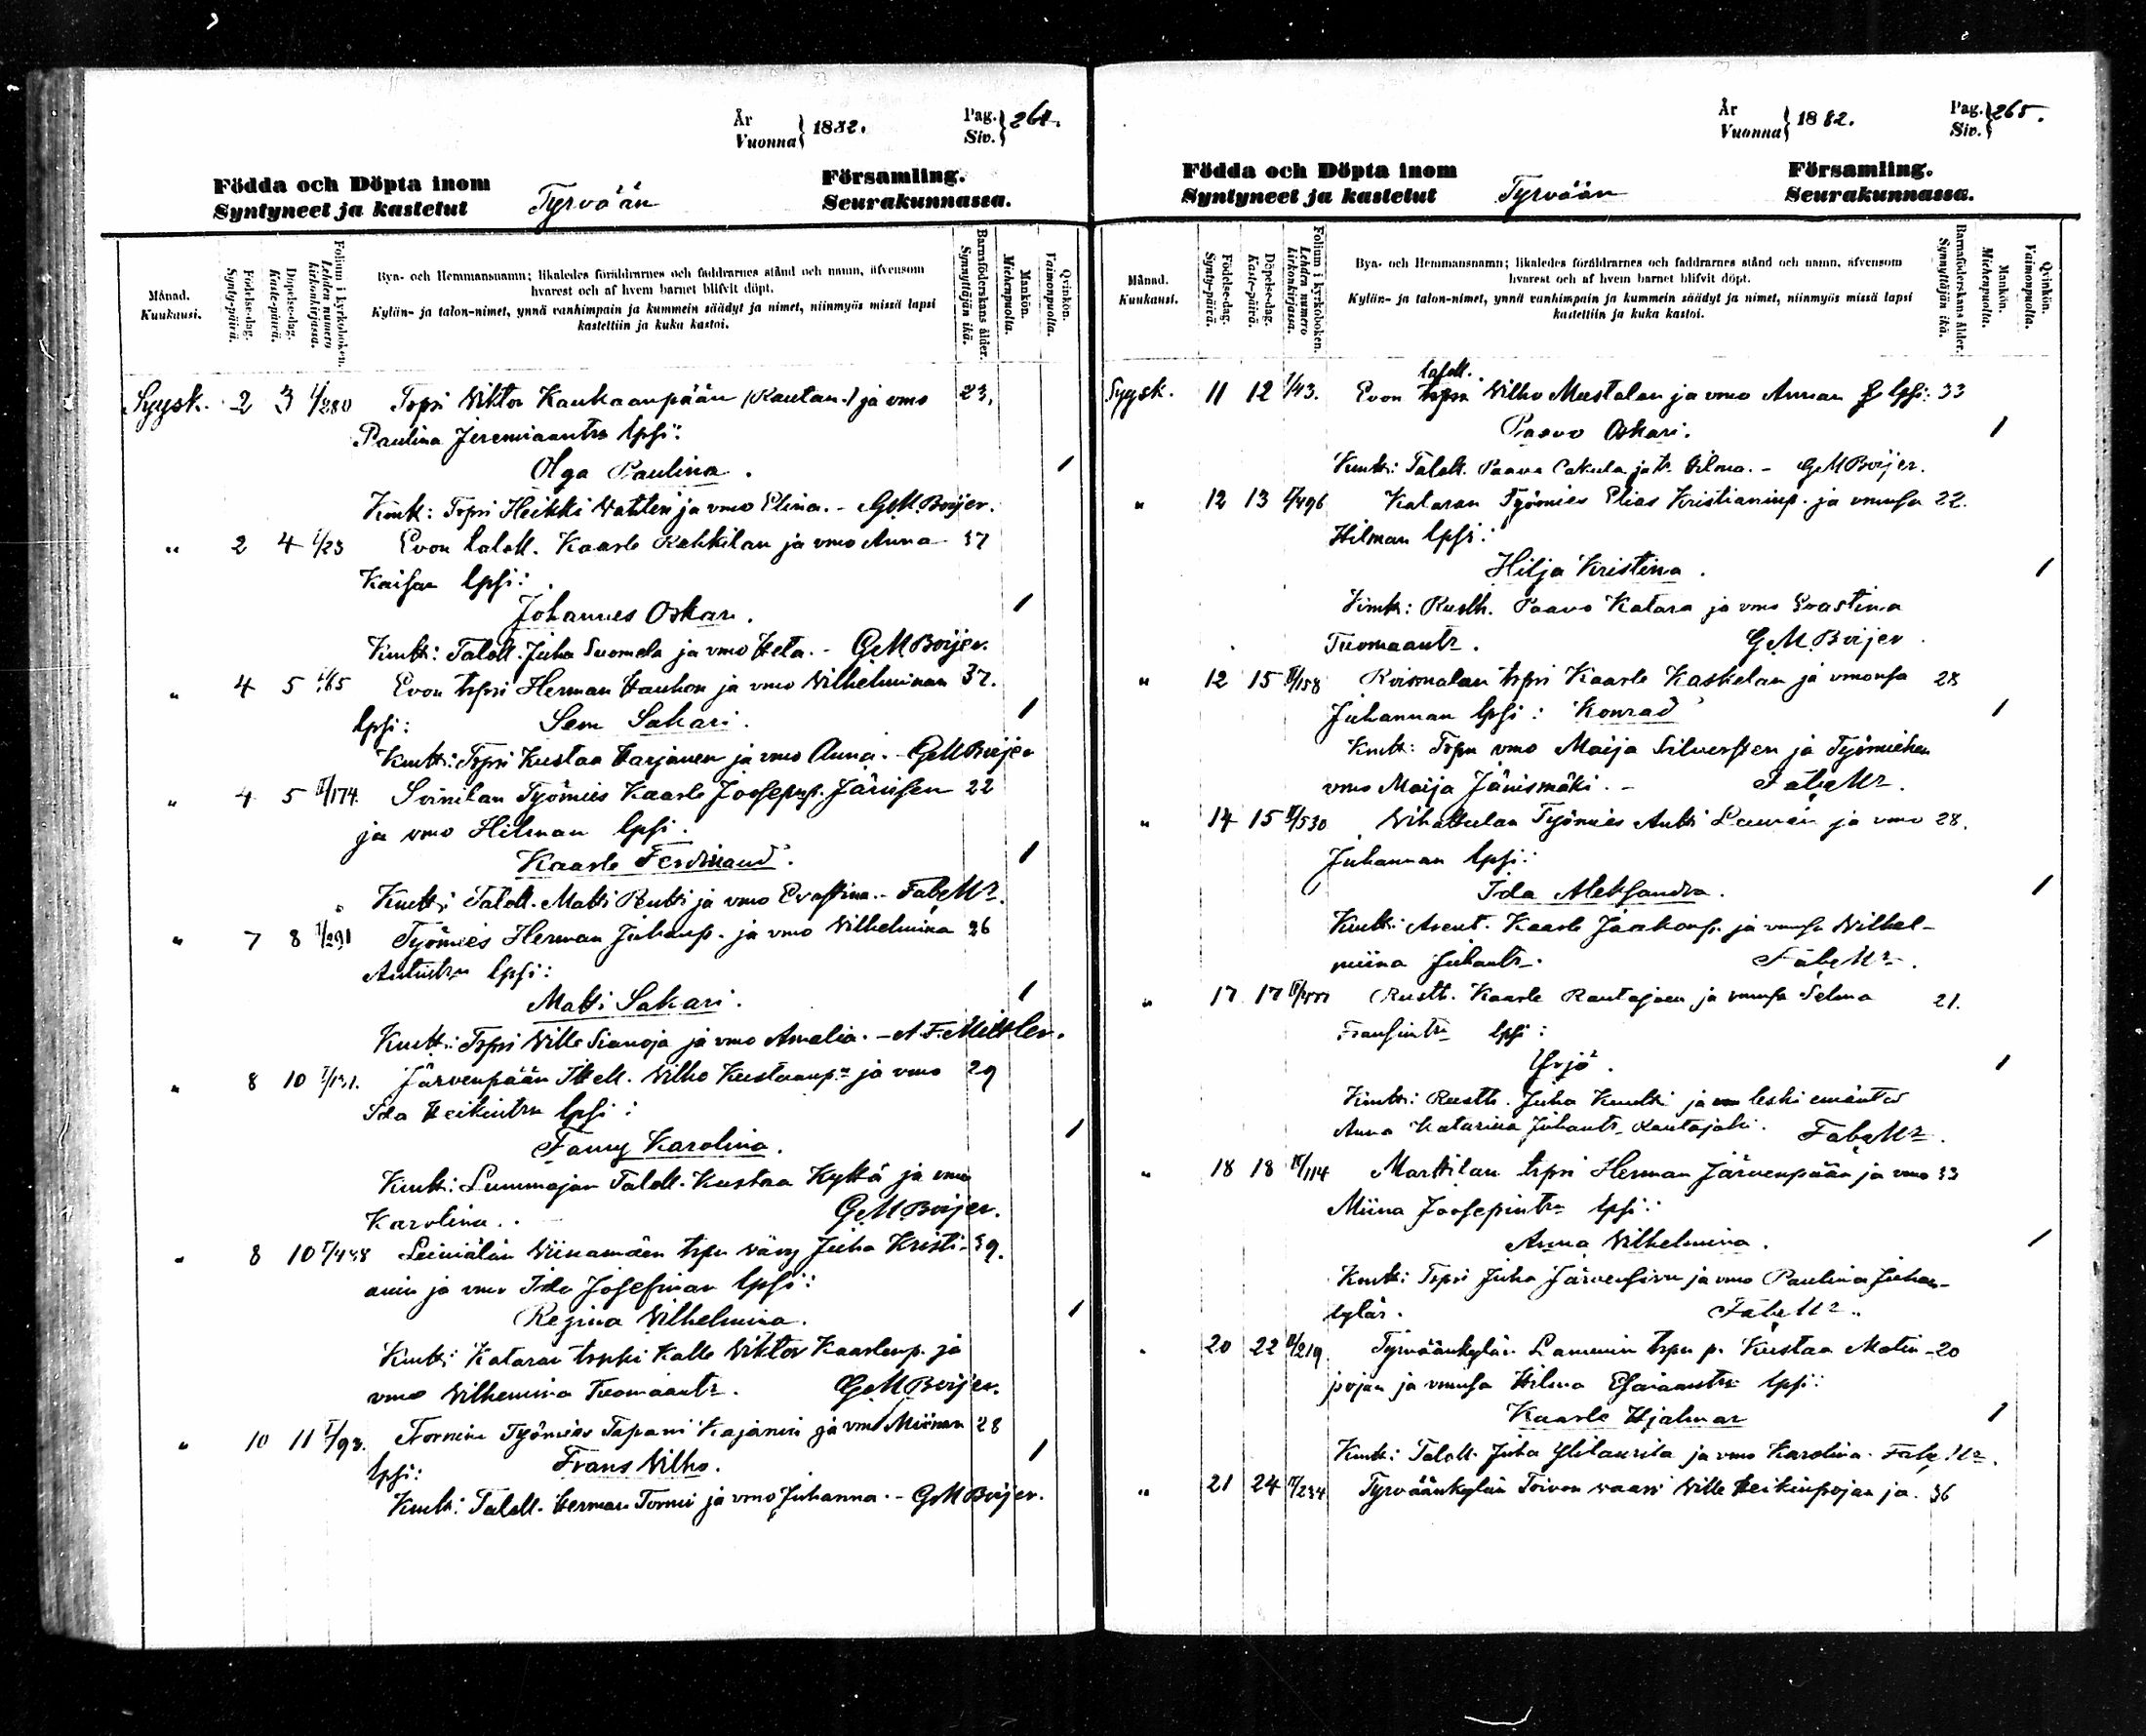 År
Vuonna } 1882.
Pag.
Siv. } 264.
Födda och Döpta inom
Syntyneet ja kastetut
Tyrvään
Församling.
Seurakunnassa.
Månad.
Kuukausi.
Födelse-dag.
Synty-päivä.
Döpelse-dag.
Kaste-päivä.
Folium i kyrkoboken.
Lehden numero kirkonkirjassa.
Byn- och Hemmansnamn; likaledes föräldrarnes och faddrarnes stånd och namn, äfvensom
hvarest och af hvem barnet blifvit döpt.
Kylän- ja talon-nimet, ynnä vanhimpain ja kummein säädyt ja nimet, niinmyös missä lapsi
kastettiin ja kuka kastoi.
Barnaföderskans ålder.
Synnyttäjän ikä.
Mankön.
Miehenpuolia.
Qvinkön.
Vaimonpuolia.
Syysk. 2 3 I/280 Trpri Viktor Kaukaanpään (Rautan.) ja vmo 23,
Paulina Jeremiaantr. lpsi:
Olga Paulina. 1
Kmtt: Trpri Heikki ja vmo Elina. - GMBoijer.
" 2 4 I/23 Evon taloll. Kaarle Rahkilan ja vmo Anna 37
Kaisan lpsi:
Johannes Oskari. 1
Kmtt: Taloll. Juha Suomela ja vmo Heta. - GMBoijer.
" 4 5 I/65 Evon trpri Herman Hauhon ja vmo Vilhelminan 37.
lpsi: Sem Sakari. 1
Kmtt: Trpri Kustaa Harjanen ja vmo Anna. - GMBoijer
" 4 5 II/174. Soinilan Työmies Kaarle Joosepinp. Järvisen 22
ja vmo Hilman lpsi.
Kaarle Ferdinand. 1
Kmtt: Taloll. Matti ja vmo Evastina. -
" 7 8 I/291 Työmies Herman Juhanp. ja vmo Vilhelmina 26
Antintrn lpsi:
Matti Sakari. 1
Kmtt: Trpri Ville Sianoja ja vmo Amalia. - A. F. Mittler.
" 8 10 I/131. Järvenpään Vilho Kustaanp. ja vmo 29
Ida Heikintrn lpsi:
Fanny Karolina. 1
Kmtt: Lummajan Taloll. Kustaa Kyttä ja vmo
Karolina. GMBoijer.
" 8 10 Leiniälän Viinamäen trpn vävy Juha Kristi- 39.
anin ja vmo Ida Josefinan lpsi:
Regina Vilhelmina. 1
Kmtt: Kataran Kalle Viktor Kaarlenp. ja
vmo Vilhemina Tuomaantr. GMBoijer.
" 10 11 I/93. Tornin Työmies Tapani Kajanin ja vmo Miinan 28
lpsi: Frans Vilho. 1
Kmtt: Taloll. Herman Tornii ja vmo Juhanna. - GMBoijer.
År
Vuonna } 1882.
Pag.
Siv. } 265.
Födda och Döpta inom
Syntyneet ja kastetut
Tyrvään
Församling.
Seurakunnassa.
Månad.
Kuukausi.
Födelse-dag.
Synty-päivä.
Döpelse-dag.
Kaste-päivä.
Folium i kyrkoboken.
Lehden numero kirkonkirjassa.
Byn- och Hemmansnamn; likaledes föräldrarnes och faddrarnes stånd och namn, äfvensom
hvarest och af hvem barnet blifvit döpt.
Kylän- ja talon-nimet, ynnä vanhimpain ja kummein säädyt ja nimet, niinmyös missä lapsi
kastettiin ja kuka kastoi.
Barnaföderskans ålder.
Synnyttäjän ikä.
Mankön.
Miehenpuolia.
Qvinkön.
Vaimonpuolia.
taloll.
Syysk. 11 12 I/43. Evon trpn Vilho Mustalan ja vmo Annan lpsi: 33
Paavo Oskari. 1
Kmtt: Taloll. Paava Cakula ja tr. Hilma. - GMBoijer.
" 12 13 I/496 Kataran Työmies Elias Kristianinp. ja vmnsa 22.
Hilman lpsi:
Hilja Kristina. 1
Kmtt: Rusth. Paavo Katara ja vmo Evastina
Tuomaantr. GMBoijer.
" 12 15 II/158 Roismalan trpri Kaarle Kaskelan ja vmonsa 28
Juhannan lpsi: Konrad 1
Kmtt: Trpn vmo Maija Silversten ja Työmiehen
vmo Maija Jänismäki. -
" 14 15 II/530 Vihattulan Työmies Antti ja vmo 28.
Juhannan lpsi:
Ida Aleksandra. 1
Kmtt: Kaarle Jaakonp. ja vmnsa Vilhel-
miina Juhantr.
" 17 17 Rusth. Kaarle Rautajoen ja vmnsa Selma 21.
Fransintrn lpsi:
Yrjö. 1
Kmtt: Rusth. Juha ja leski emäntä
Anna Katarina Juhantr. Rautajoki.
" 18 18 II/114 Marttilan trpri Herman Järvenpään ja vmo 33
Miina Joosepintrn lpsi:
Anna Vilhelmina. 1
Kmtt: Trpri Juha Järvensivu ja vmo Paulina Juhan-
kylär.
" 20 22 II/219 Tyrväänkylän Lammin trpn p. Kustaa Matin- 20
pojan ja vmnsa Hilma Esaiaantrn lpsi:
Kaarle Hjalmar 1
Kmtt: Taloll. Juha Ylilaurila ja vmo Karolina.
" 21 24 II/234 Tyrväänkylän Toivon vaari Ville Heikinpojan ja. 36